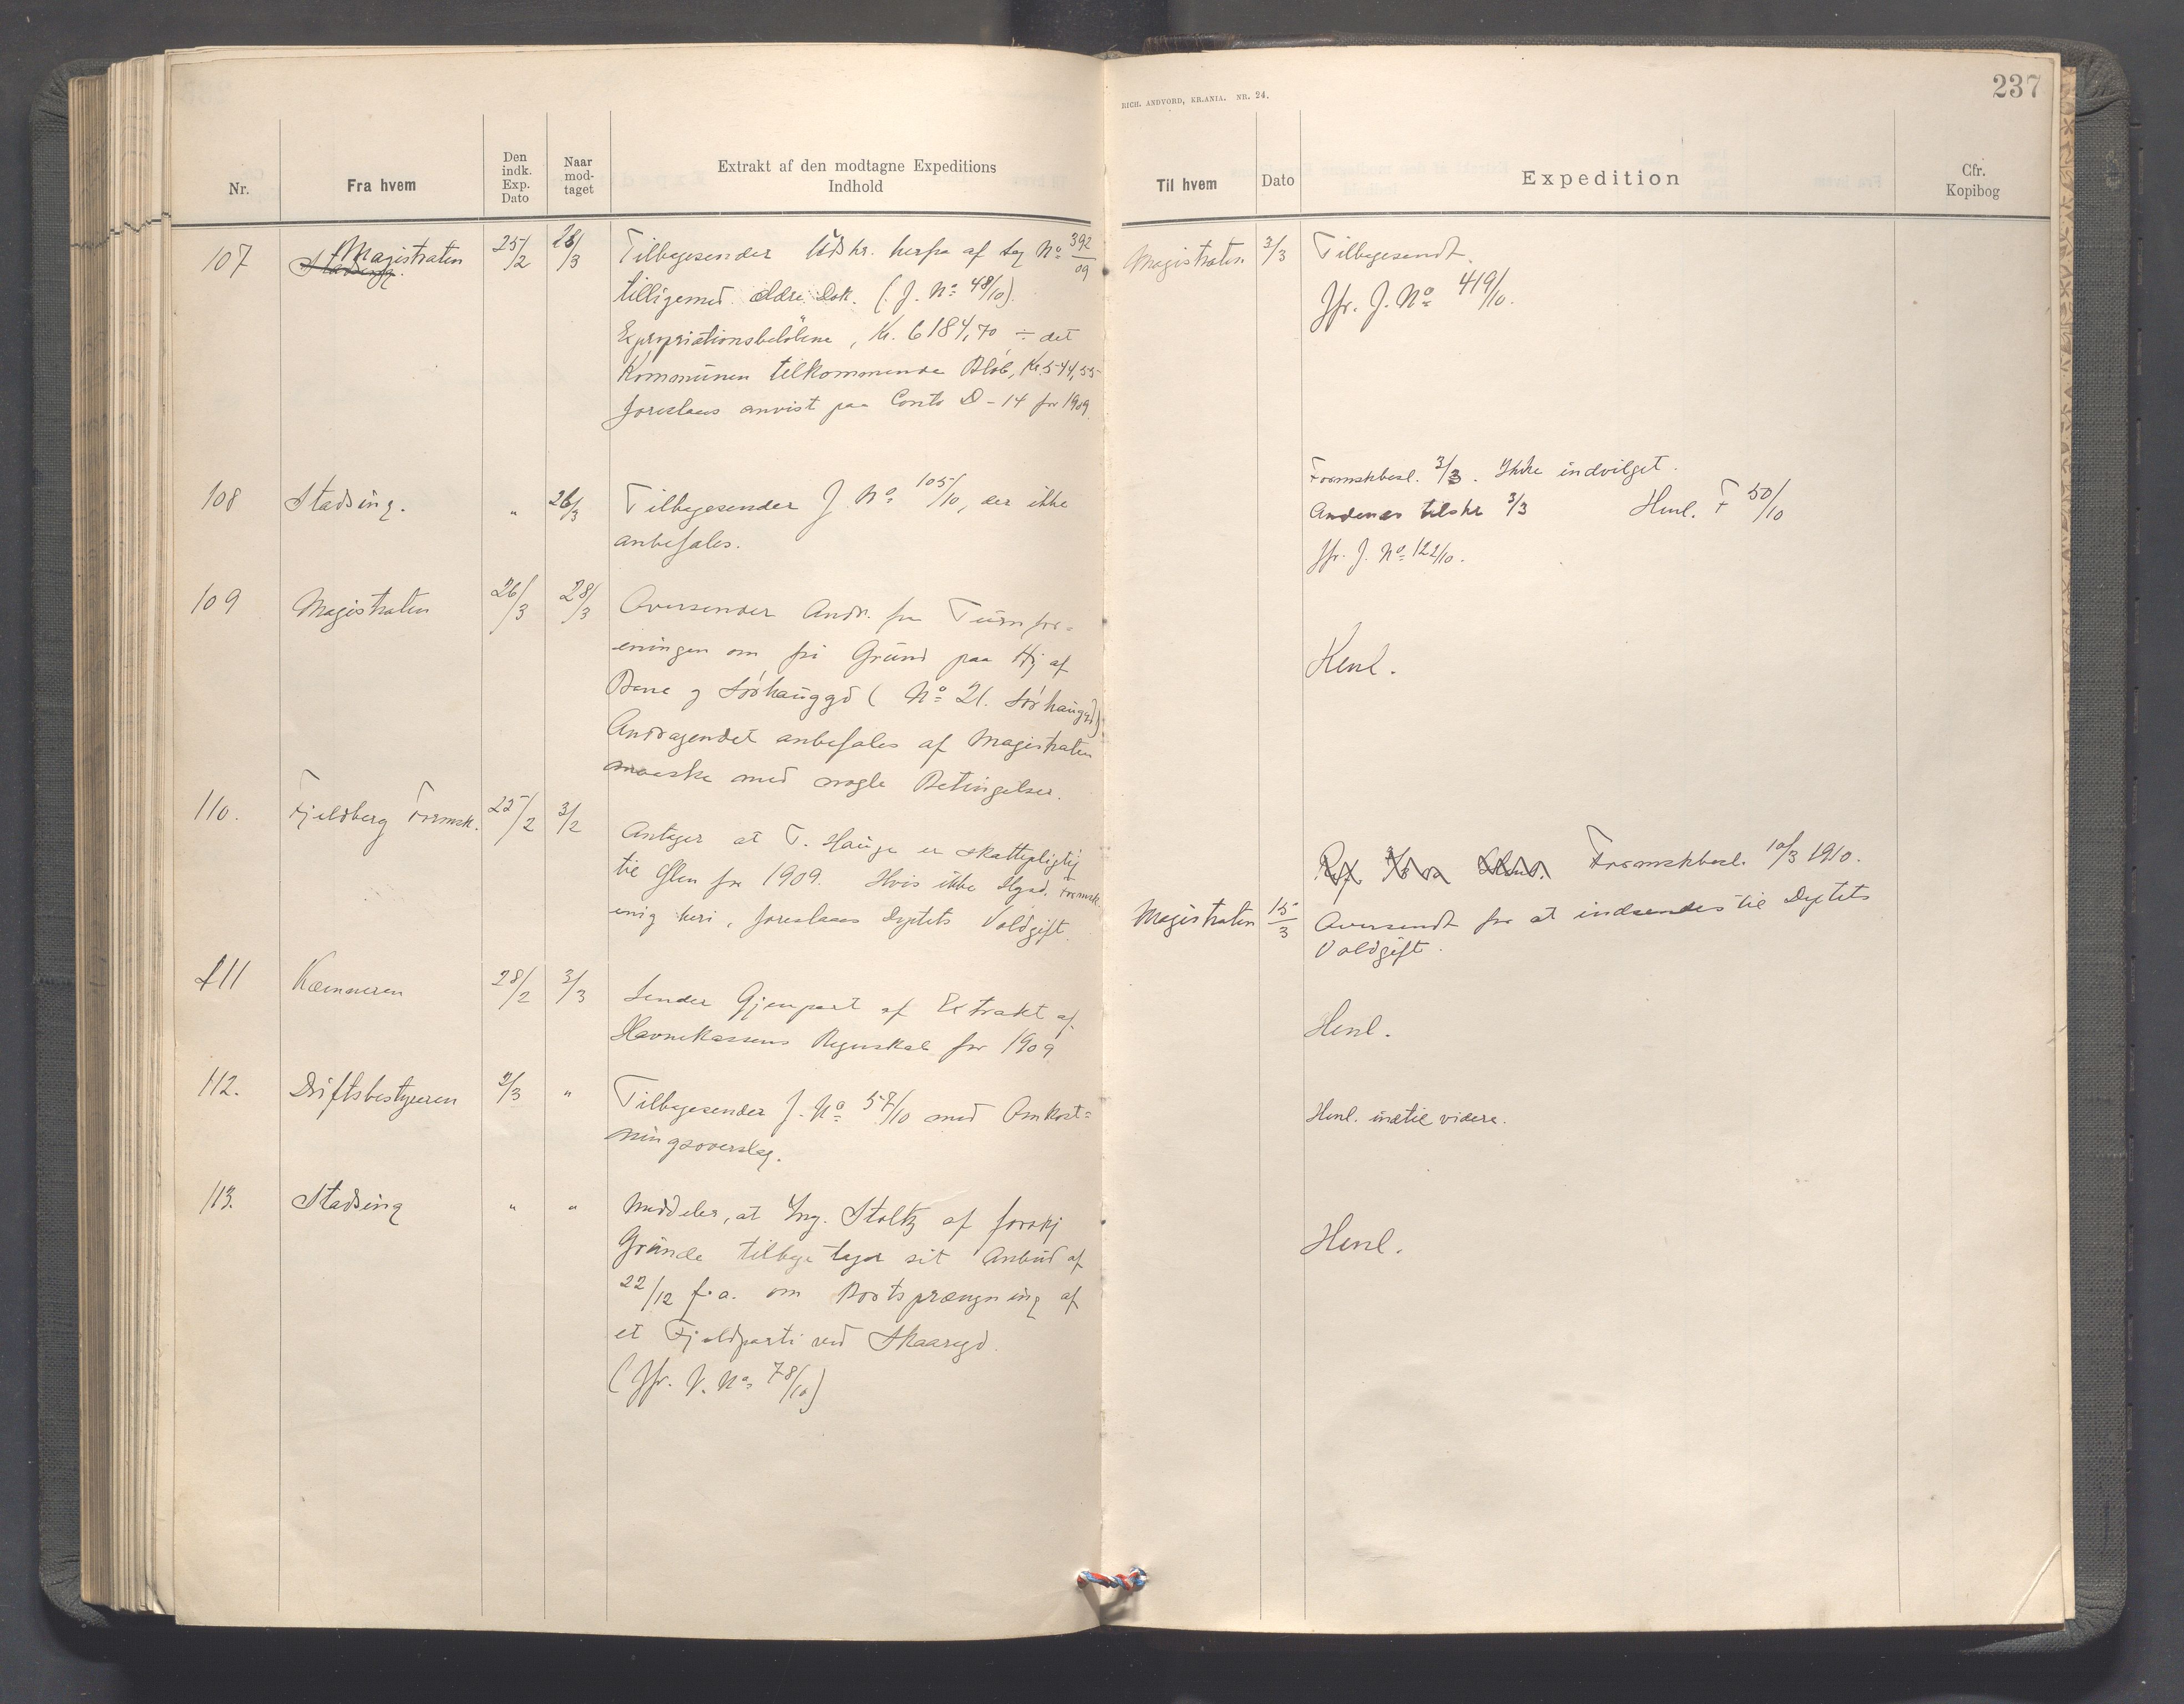 RICH. ANDVORD, KR.ANIA. NR. 24.
237
Nr.
Fra hvem
Den indk. Exp. Dato
Naar mod-taget
Extrakt af den modtagne Expeditions Indhold
Til hvem
Dato
Expedition
Cfr. Kopibog
107 Magistraten 25/2 28/3 Tilbagesender Udskr. herfra af Sag No 392/09
Stadsing.
tilligemed ældre Dok. (J. No 48/10).
Expropriationsbeløbene, Kr. 6184,70 ÷ det
Kommunen tilkommende Bløb, Kr. 544,55
foreslaaes anvist paa Conto D-14 for 1909.
Magistraten 3/3 Tilbagesendt.
Jfr. J. No 419/10.
108 Stadsing. " 26/3 Tilbagesender J. No 105/10, der ikke
anbefales.
Formskbesl. 3/3. Ikke indvilget.
Andenes tilskr 3/3 Henl. F 50/10
Jfr. J. No 122/10.
109 Magistraten 26/3 28/3 Oversender Andr. fra Turnfor=
eningen om fri Grund paa Hj af
Bane og Sørhauggd (No 21. Sørhauggd).
Andragendet anbefales af Magistraten
maaske med nogle Betingelser.
Henl.
110. Fjeldberg Formsk. 25/2 3/2 Antager at T. Hauge er skattepligtig
til Ølen for 1909. Hvis ikke Hgsd. Formsk.
enig heri, foreslaaes Dptets Voldgift.
Formskbesl. 10/3 1910.
Magistraten 15/3 Oversendt for at indsendes til Dptets
Voldgift.
111 Kæmneren 28/2 3/3 Sender Gjenpart af Extrakt af
Havnekassens Regnskab for 1909
Henl.
112. Driftsbestyreren 2/3 " Tilbagesender J. No 57/10 med Omkost=
ningsoverslag.
Henl. indtil videre.
113. Stadsing " " Meddeler, at Ing. Stoltz af forskj
Grunde tilbagetager sit Anbud af
22/12 f.a. om Bortsprængning af
et Fjeldparti ved Skaaregd.
(Jfr. J. No 78/10)
Henl.